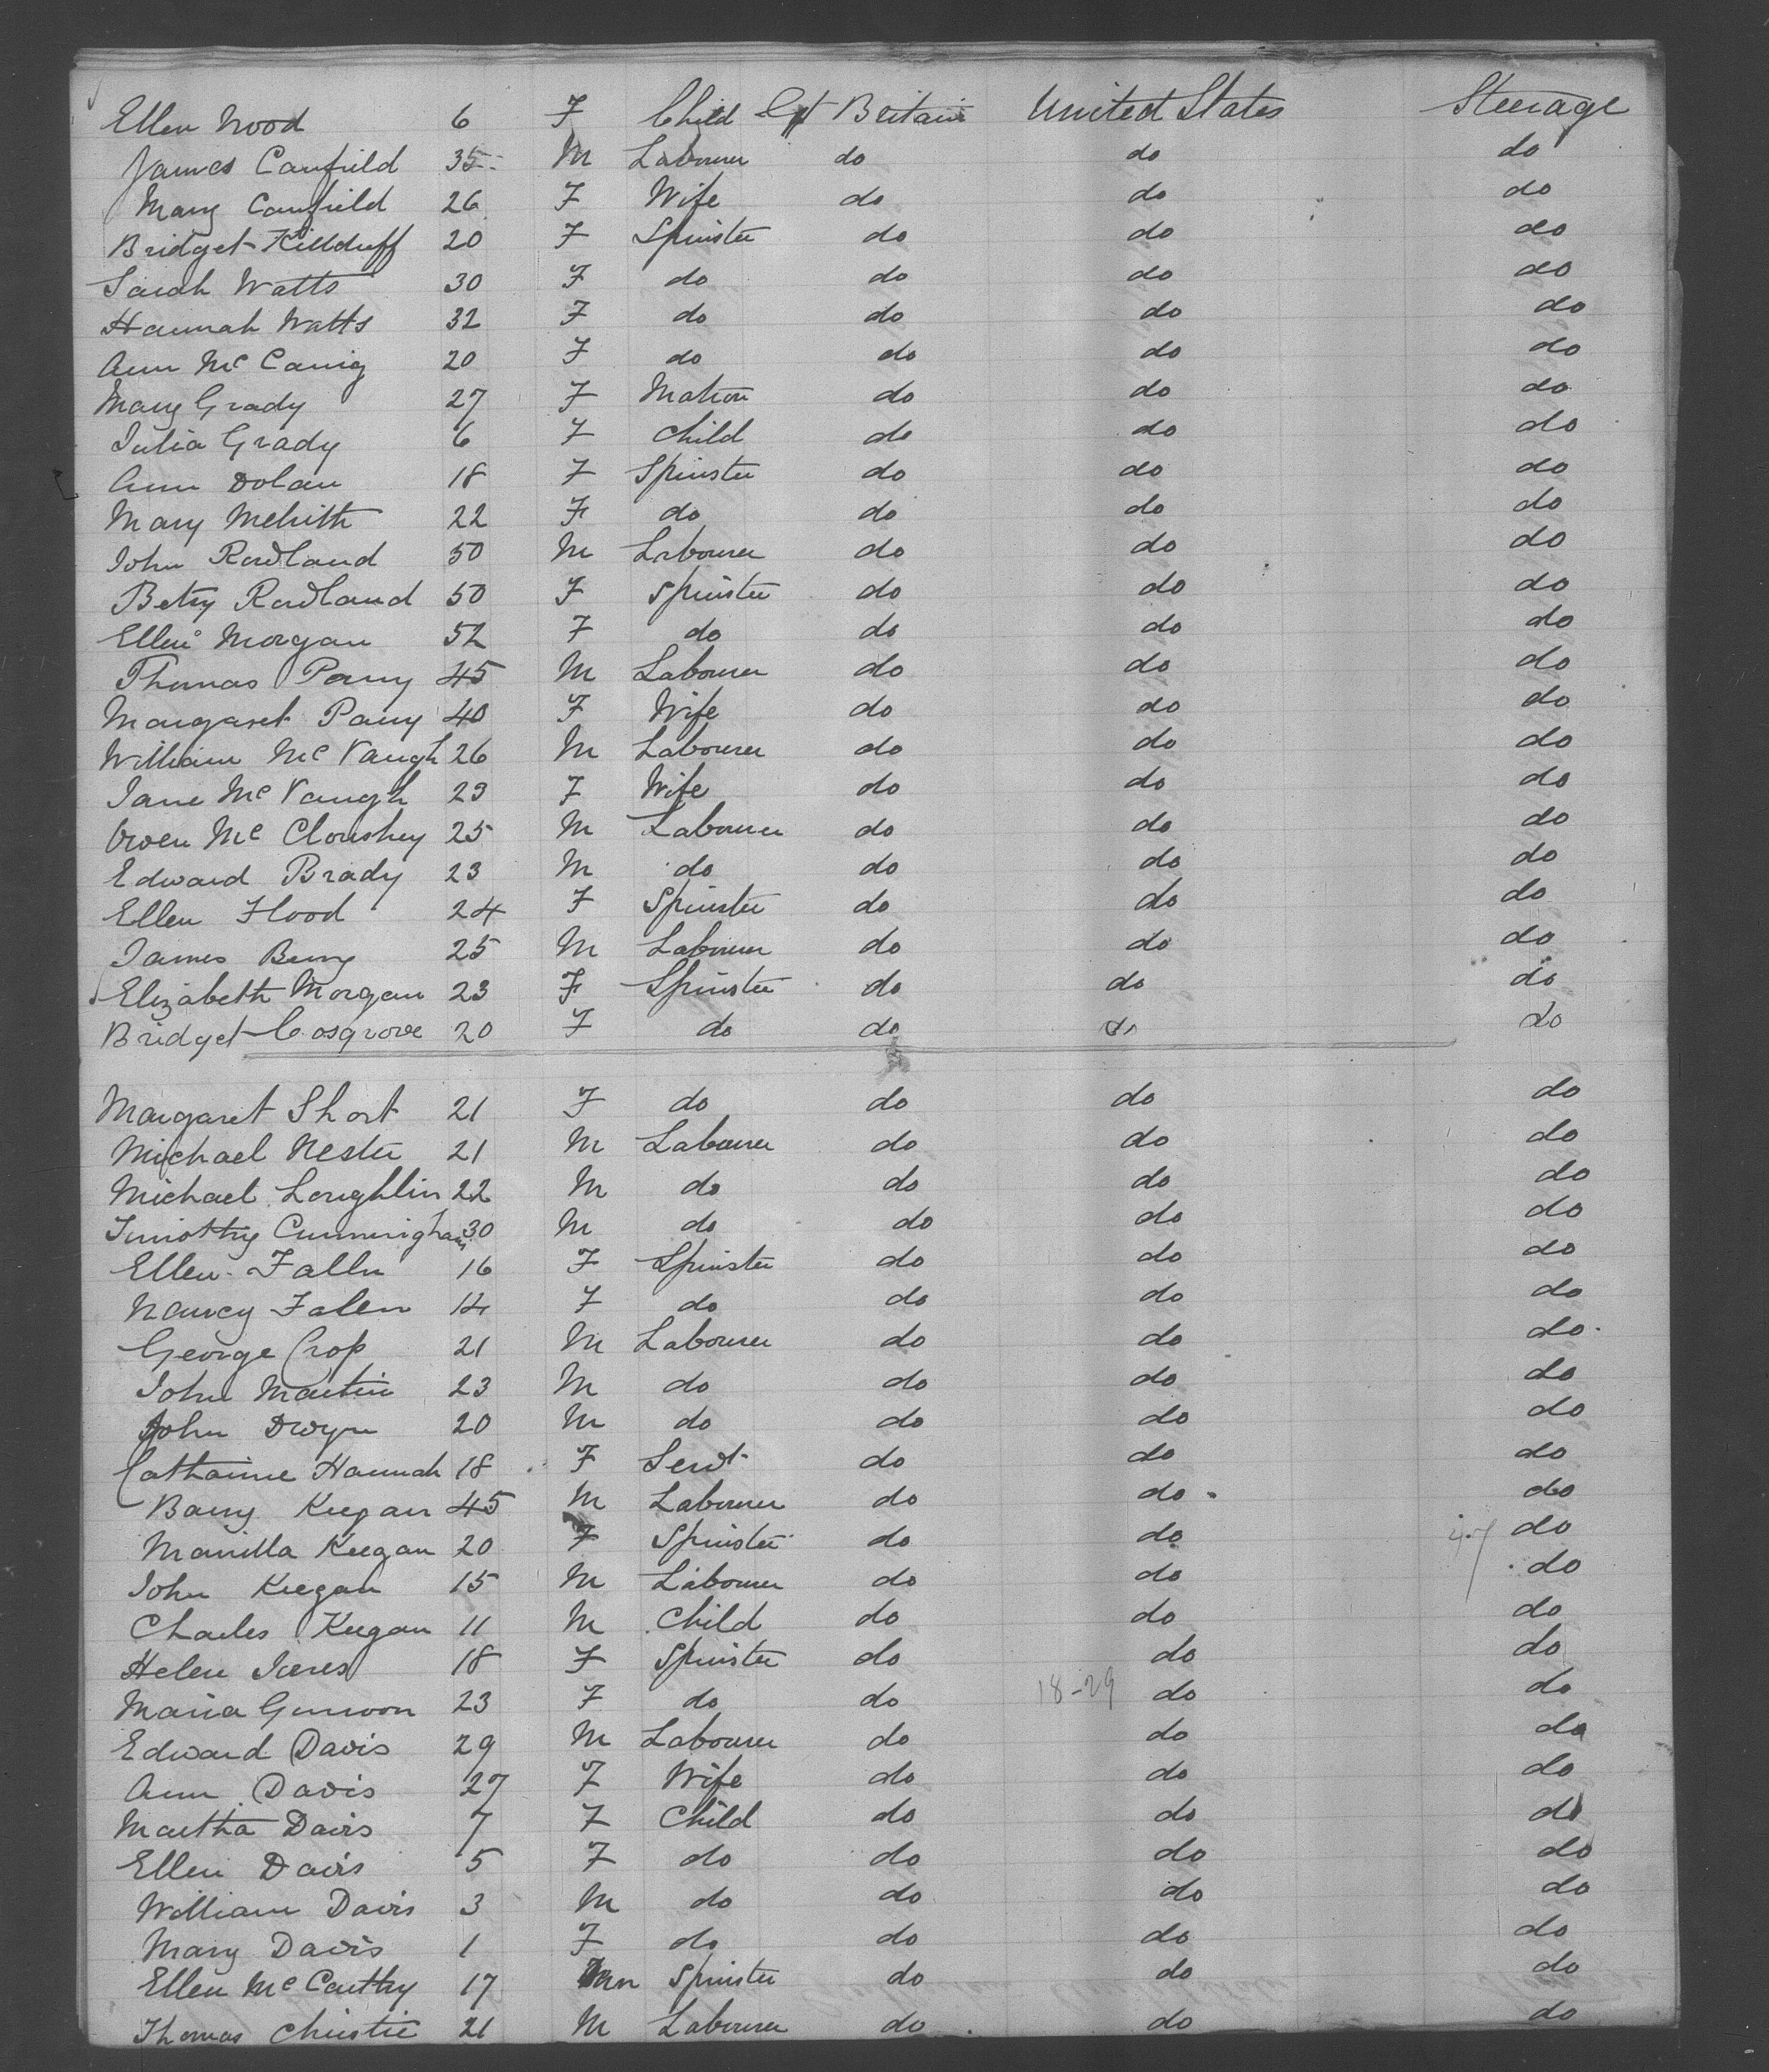 Ellen Wood 6 F Child Gt Britain United States Steerage
James Canfield 35 M Labourer do do do
Mary Canfield 26 F Wife do do do
Bridget Killduff 20 F Spinster do do do
Sarah Watts 30 F do do do do
Hannah Watts 32 F do do do do
Ann Mc 20 F do do do do
Mary Grady 27 F Matron do do do
Julia Grady 6 F Child do do do
Ann Dolan 18 F Spinster do do do
Mary 22 F do do do do
John Rowland 50 M Labourer do do do
Betsy Rowland 50 F Spinster do do do
Ellen Morgan 52 F do do do do
Thomas Parry 45 M Labourer do do do
Margaret Parry 40 F Wife do do do
William Mc Vaugh 26 M Labourer do do do
Jane Mc Vaugh 23 F Wife do do do
Owen Mc Clouskey 25 M Labourer do do do
Edward Brady 23 M do do do do
Ellen Flood 24 F Spinster do do do
James 25 M Labourer do do do
Elizabeth Morgan 23 F Spinster do do do
Bridget Cosgrove 20 F do do do do
Margaret Short 21 F do do do do
Michael Nester 21 M Labourer do do do
Michael Loughlin 22 M do do do do
Timothy Cunningham 30 M do do do do
Ellen Fallen 16 F Spinster do do do
Nancy Falen 14 F do do do do
George Crop 21 M Labourer do do do
John Martin 23 M do do do do
John Dwyer 20 M do do do do
Catharine Hannah 18 F Servt do do do
Barry Keegan 45 M Labourer do do do
Manilla Keegan 20 F Spinster do do do
John Keegan 15 M Labourer do do do
Charles Keegan 11 M Child do do do
Helen 18 F Spinster do do do
Maria 23 F do do 18-29 do do
Edward Davis 29 M Labourer do do do
Ann Davis 27 F Wife do do do
Martha Davis 7 F Child do do do
Ellen Davis 5 F do do do do
William Davis 3 M do do do do
Mary Davis 1 F do do do do
Ellen Mc Carthy 17 Spinster do do do
Thomas Christie 21 M Labourer do do do